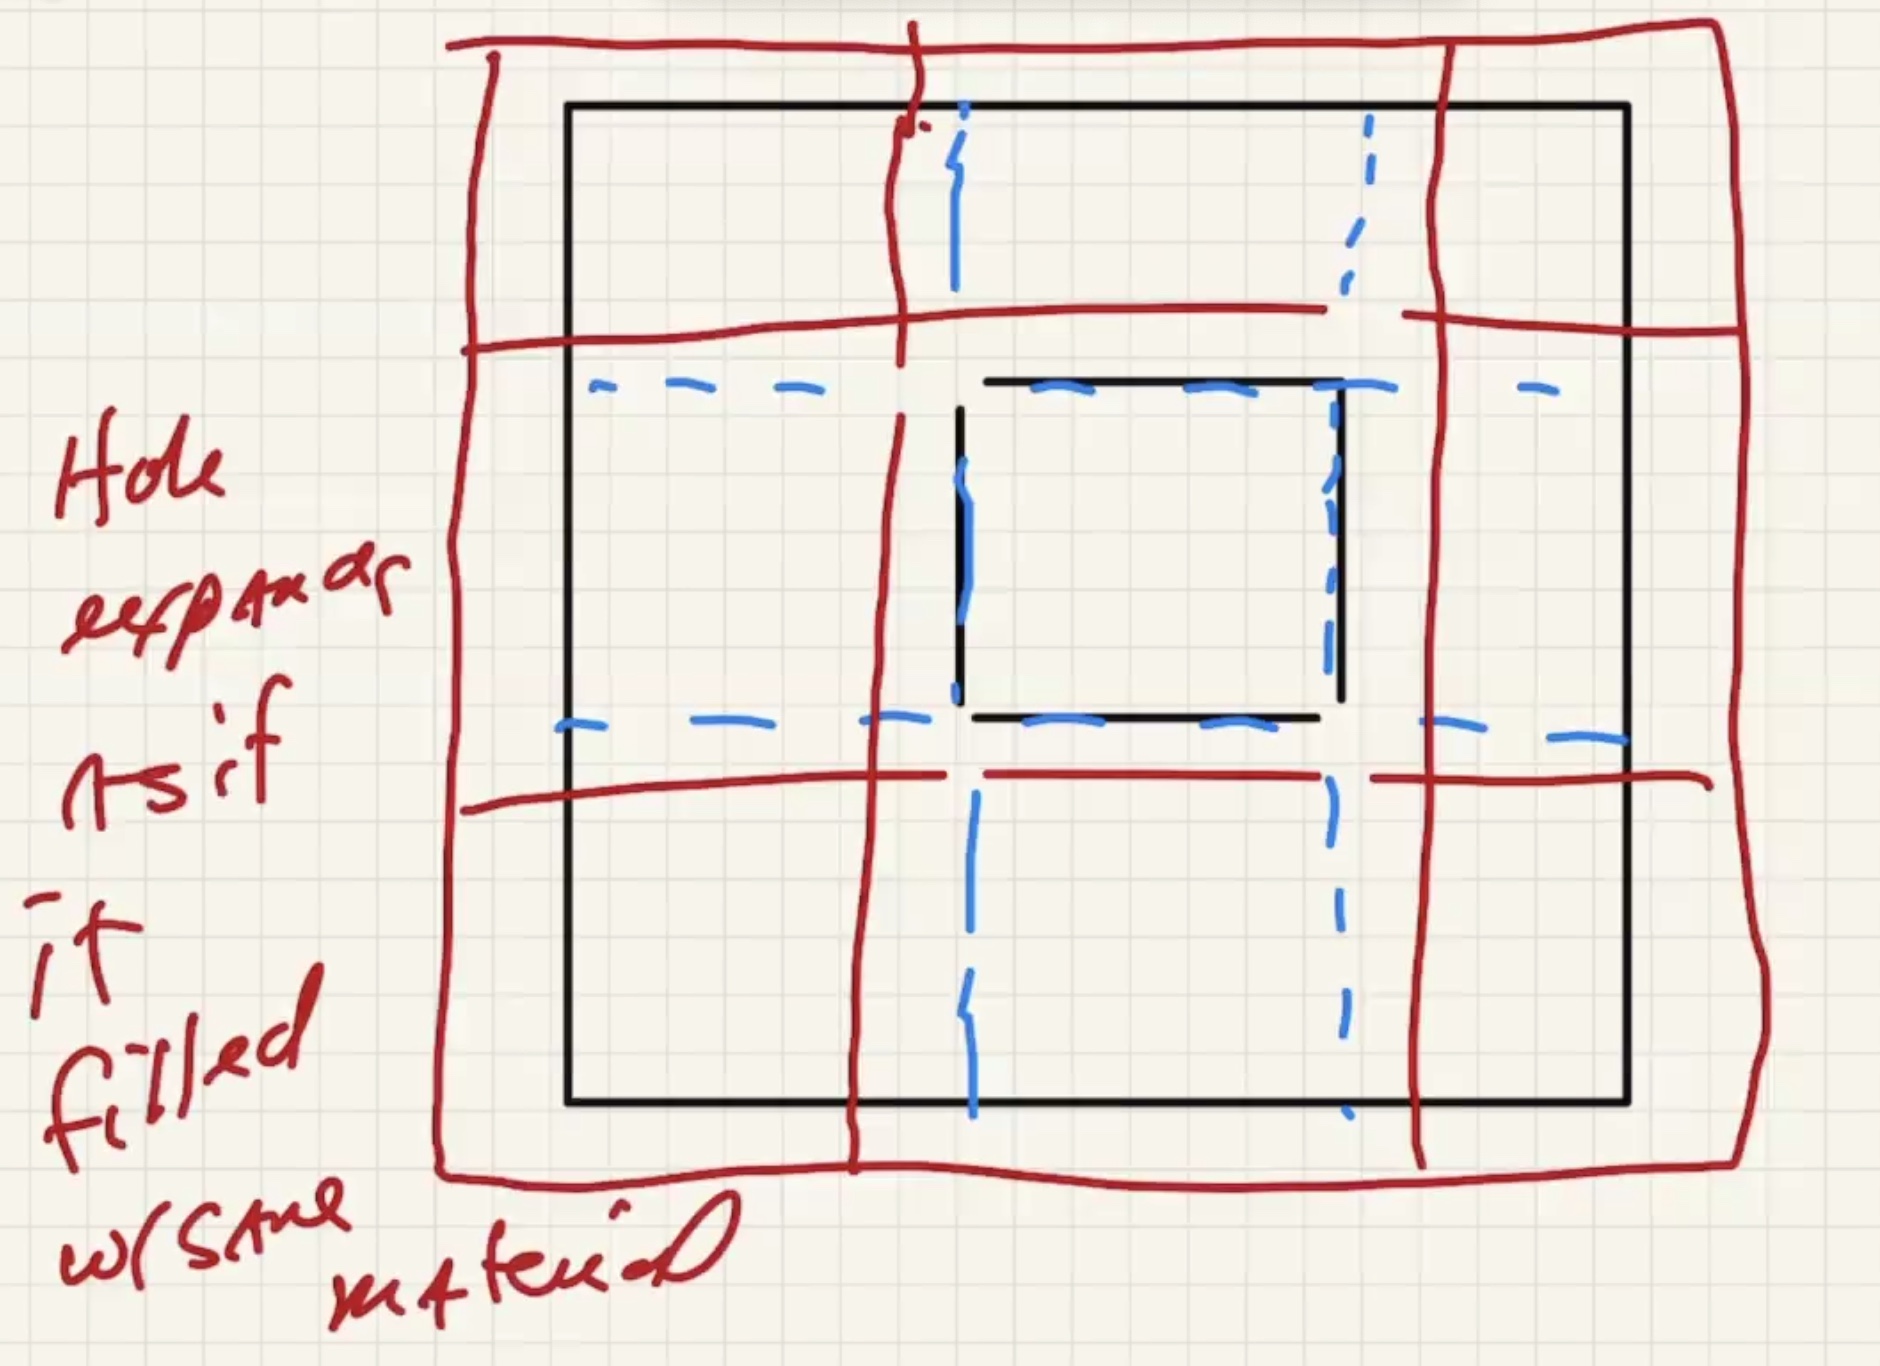 Hole
expands
As if
it
filled
w/ SAme
mAterial